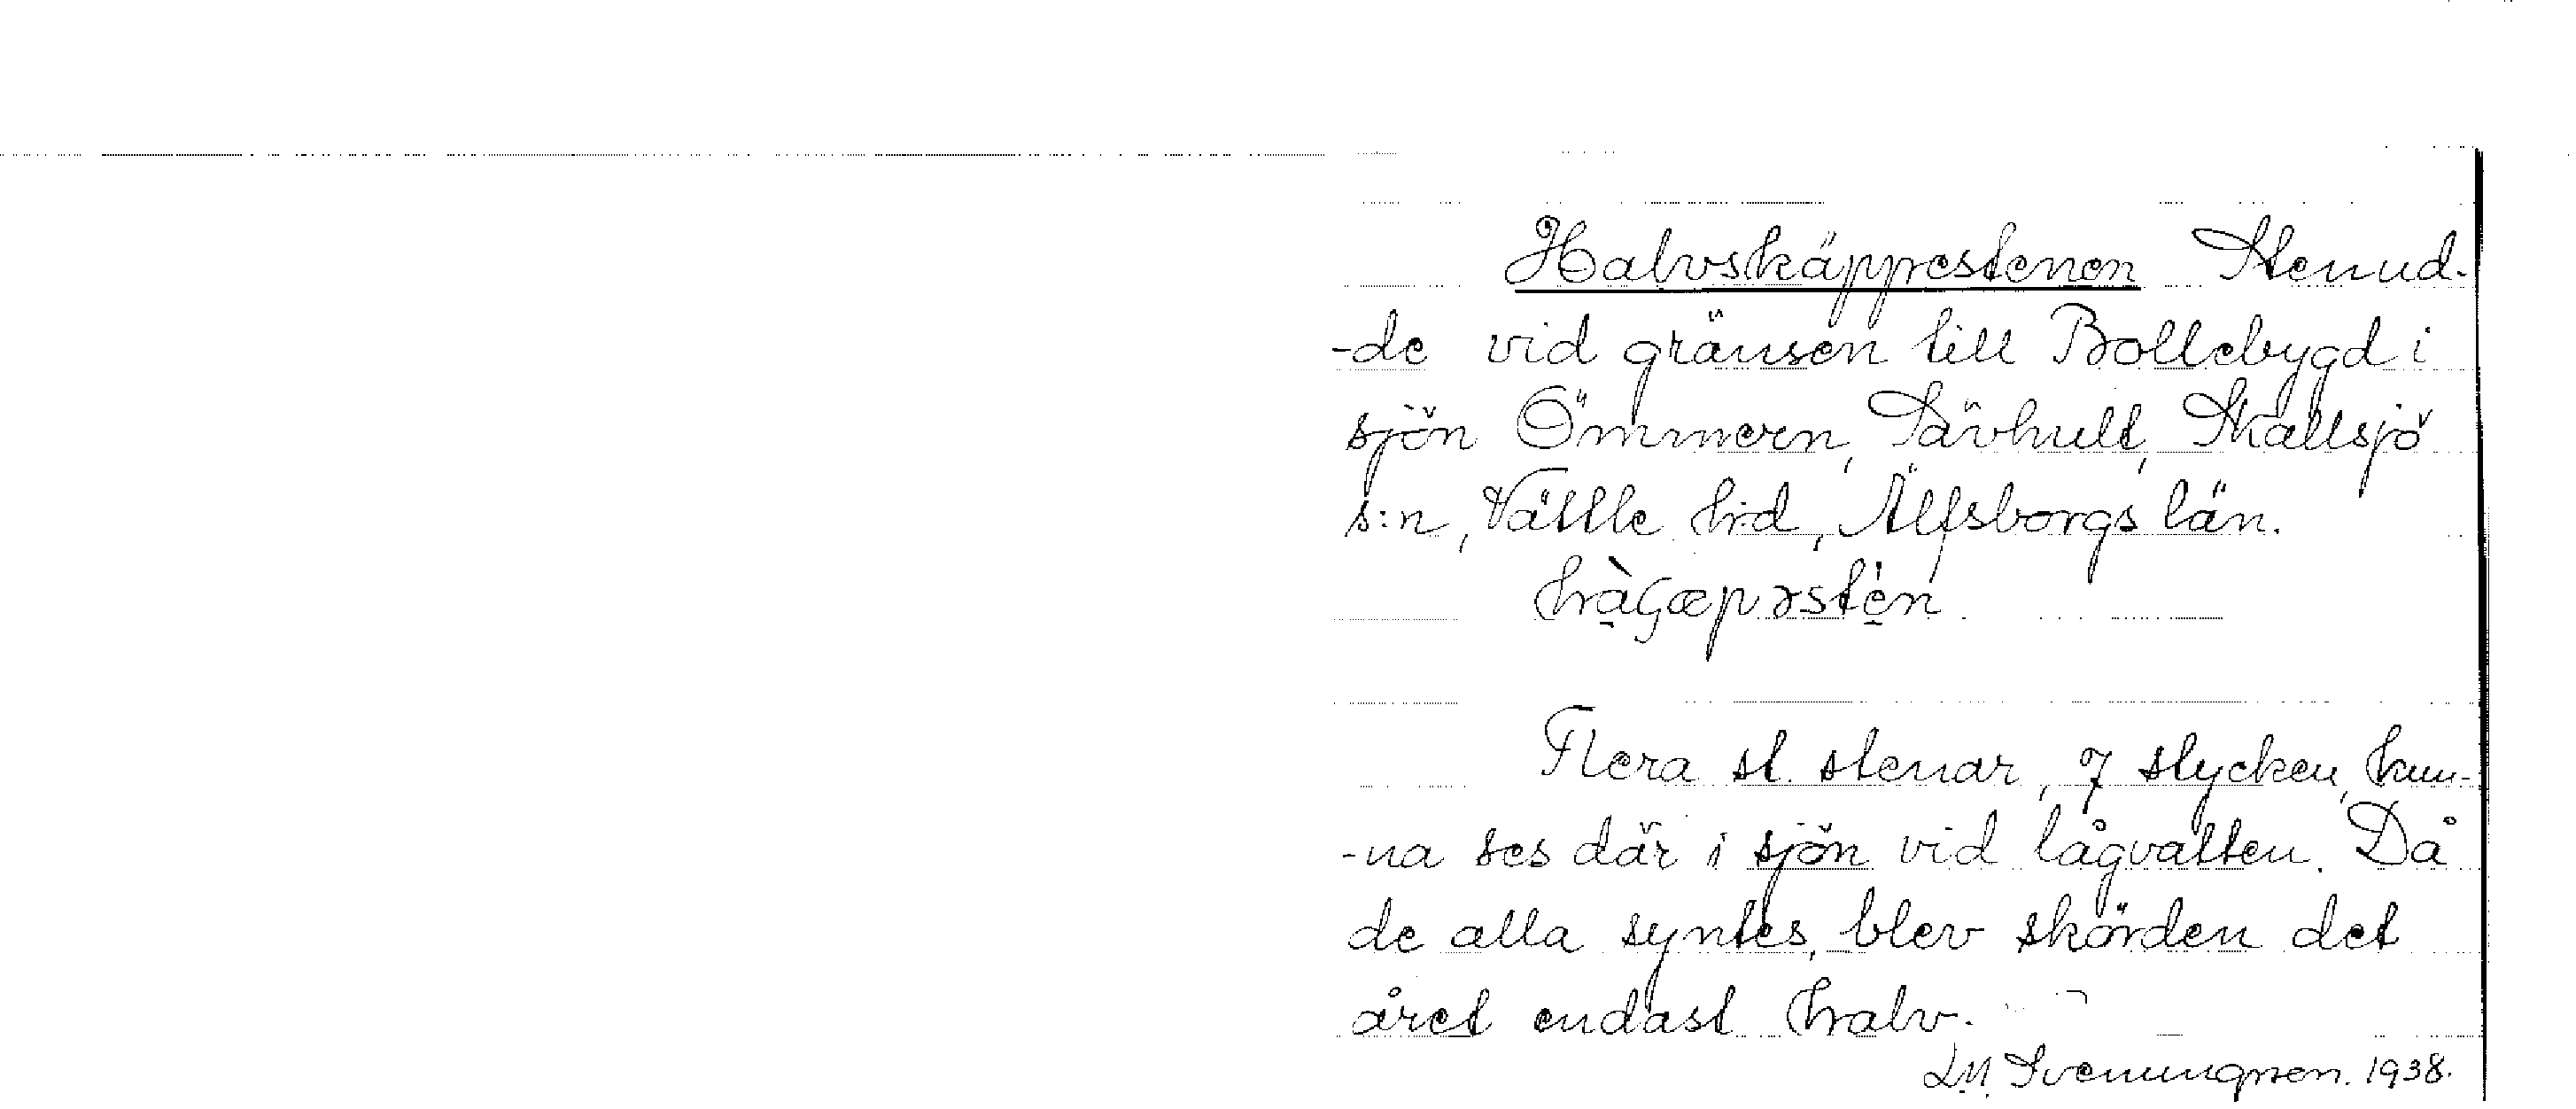 Halvskäppestenen Stenud-
-de vid gränsen till Bollebygd i
sjön Ömmern, Sävhult, Skallsjö
s:n, Vättle hd, Älfsborgs län.
Flera st. stenar, 7 stycken, kun-
-na ses där i sjön vid lågvatten. Då
de alla syntes, blev skörden det
året endast halv.
L.M. Svenungsson. 1938.